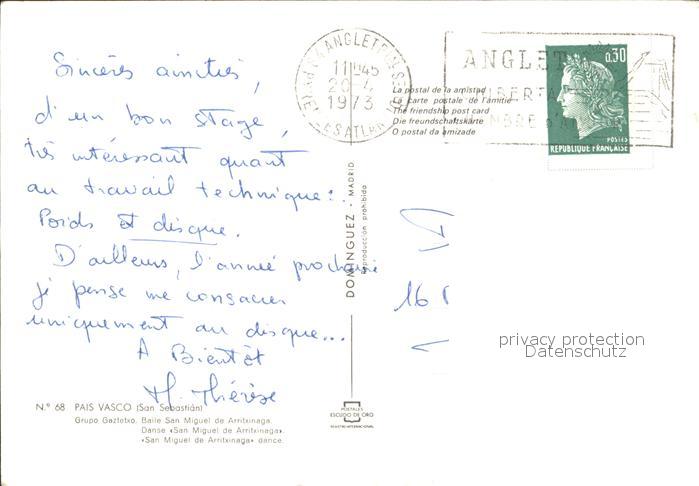 Sincères amitiés,
d'un bon stage,
très intéressant quant
au travail technique:
Poids et disque.
D'ailleurs, l'année prochaine
je pense me consacrer
uniquement au disque...
A Bientôt
M. Thérèse
N.º 68 PAIS VASCO (San Sebastián)
Grupo Gaztetxo. Baile San Miguel de Arritxinaga.
Danse «San Miguel de Arritxinaga».
«San Miguel de Arritxinaga» dance.
DOMINGUEZ - MADRID
Reproducción prohibida
POSTALES
ESCUDO DE ORO
REGISTRO INTERNACIONAL
La postal de la amistad
La carte postale de l'amitié
The friendship post card
Die freundschaftskarte
O postal da amizade
ANGLET
11H45
20-4
1973
ANGLET
0,30
POSTES
REPUBLIQUE FRANÇAISE
16
privacy protection
Datenschutz